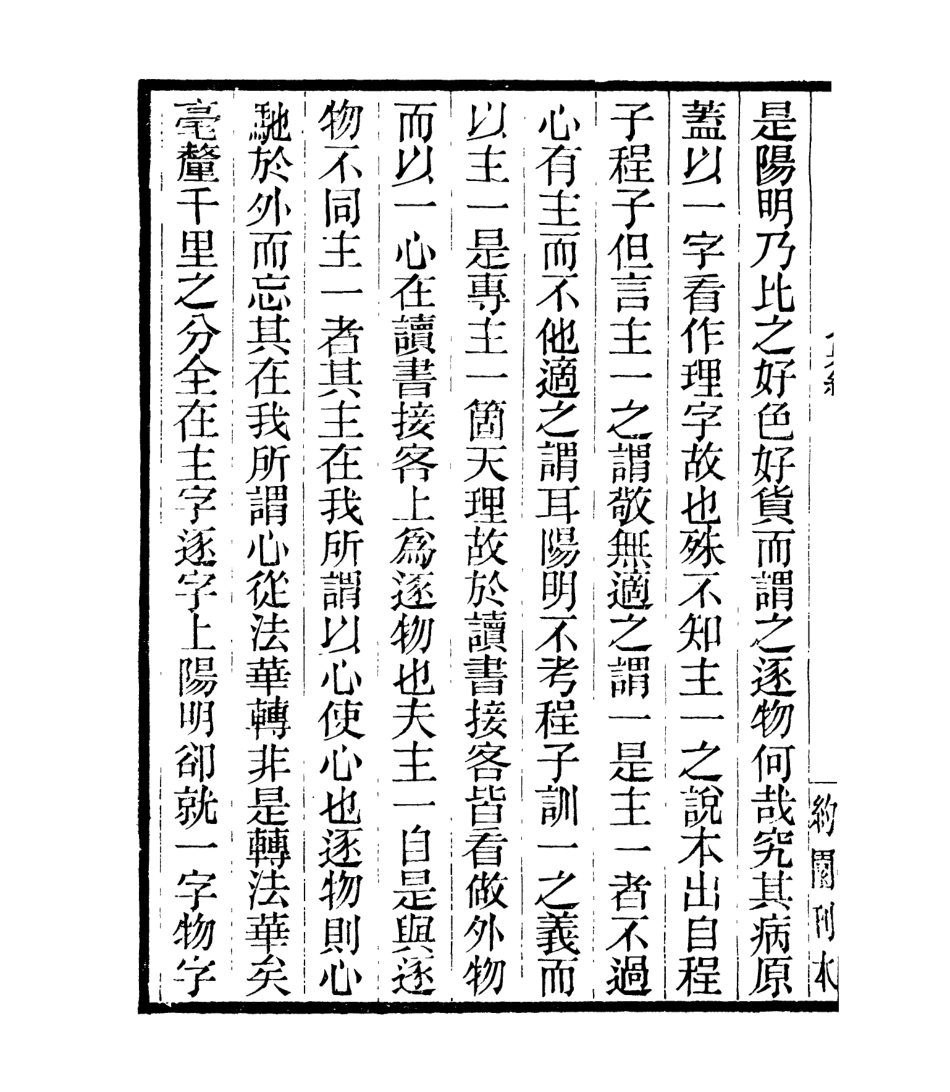 是陽明乃比之好色好貨而謂之逐物何哉究其病原
蓋以一字看作理字故也殊不知主一之說本出自程
子程子但言主一之謂敬無適之謂一是主一者不過
心有主而不他適之謂耳陽明不考程子訓一之義而
以主一是專主一箇天理故於讀書接客皆看做外物
而以一心在讀書接客上爲逐物也夫主一自是與逐
物不同主一者其主在我所謂以心使心也逐物則心
馳於外而忘其在我所謂心從法華轉非是轉法華矣
毫釐千里之分全在主字逐字上陽明卻就一字物字
約園刊本